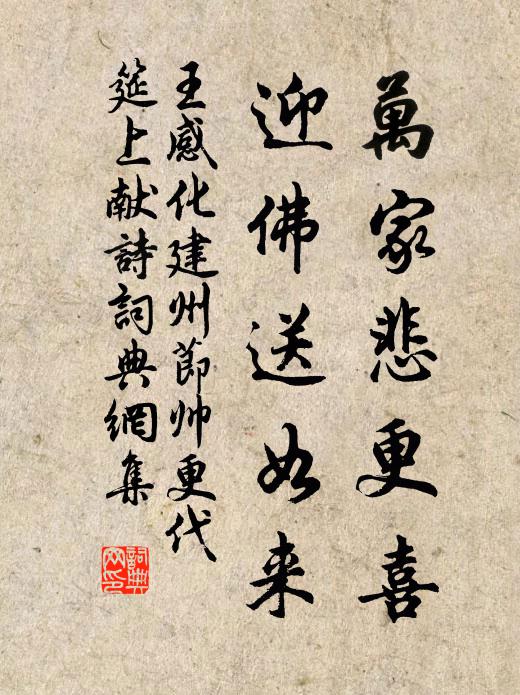 萬家悲更喜
迎佛送如来
王感化建州節帅更代
筵上献詩詞典網集
詞典网印